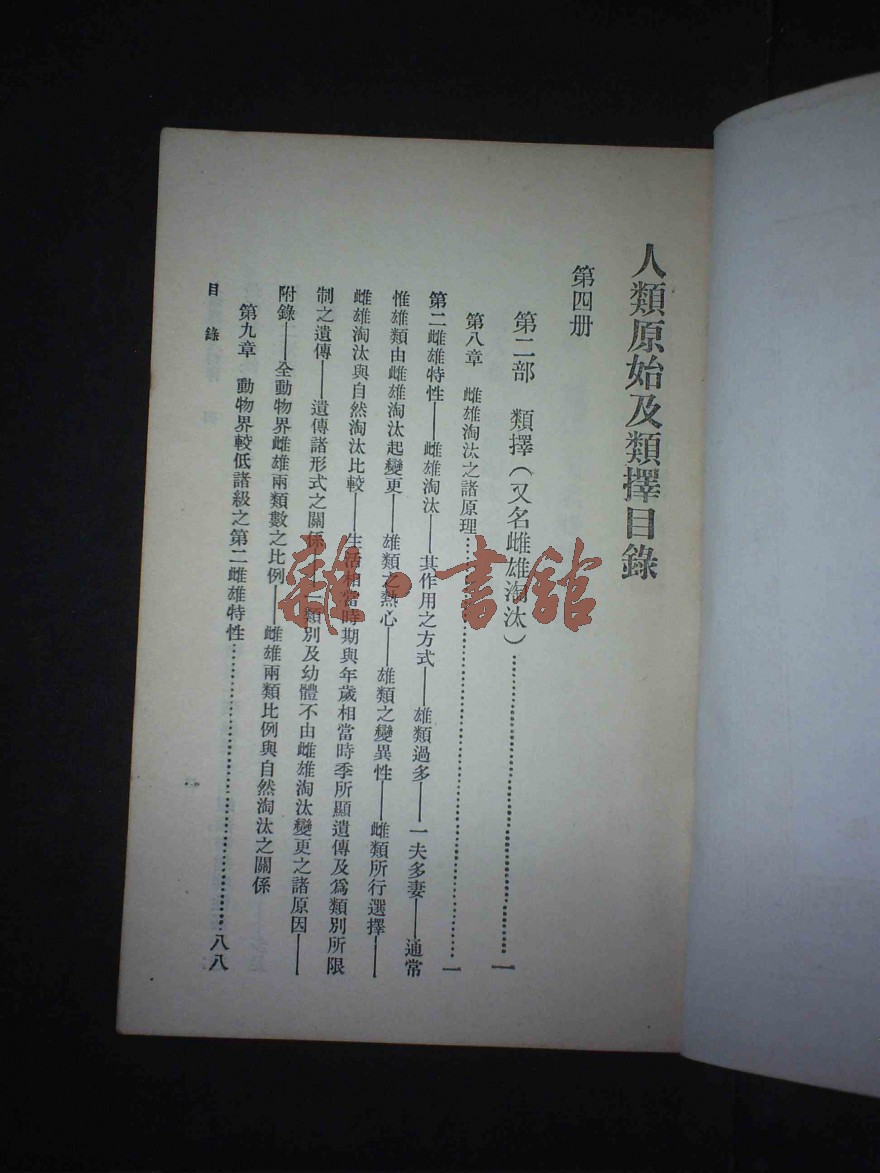 人類原始及類擇目錄
第四册
第二部　類擇（又名雌雄淘汰）…………………一
第八章　雌雄淘汰之諸原理…………………一
第二雌雄特性——雌雄淘汰——其作用之方式——雄類過多——一夫多妻——通常
惟雄類由雌雄淘汰起變更——雄類之熱心——雄類之變異性——雌類所行選擇——
雌雄淘汰與自然淘汰比較——生活相當時期與年歲相當時季所顯遺傳及爲類別所限
制之遺傳——遺傳諸形式之關係——一類別及幼體不由雌雄淘汰變更之諸原因——
附錄——全動物界雌雄兩類數之比例——雌雄兩類比例與自然淘汰之關係
第九章　動物界較低諸級之第二雌雄特性…………………八八
目錄
雜·書館